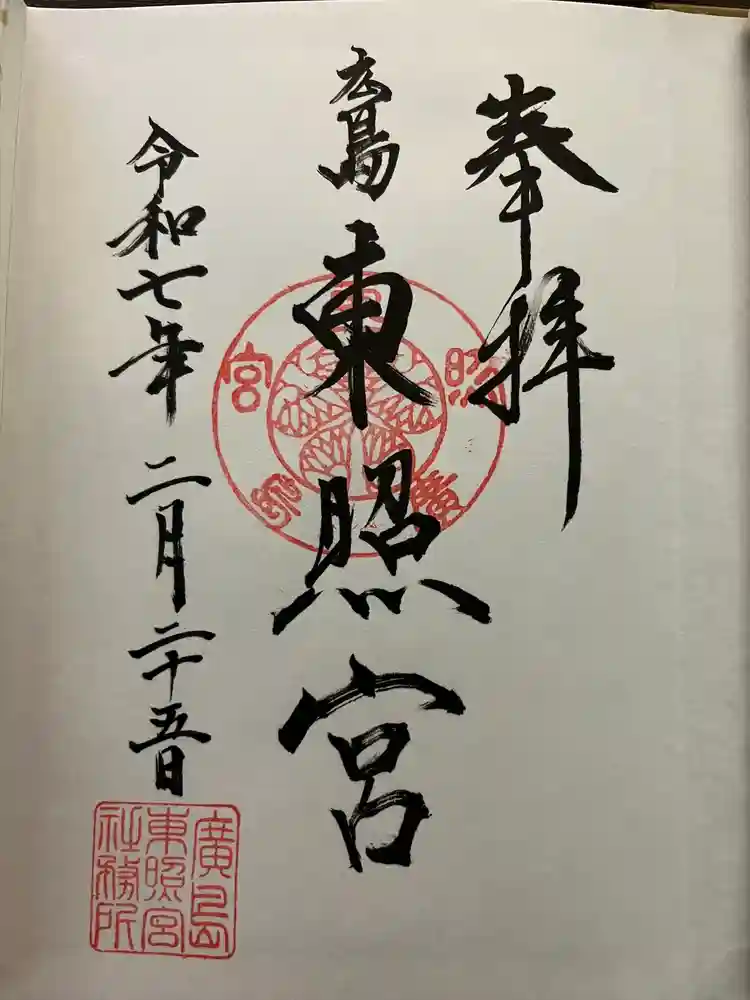 奉拝
広島
東照宮
令和七年二月二十五日
東
照
宮
廣島
東照宮
社務所